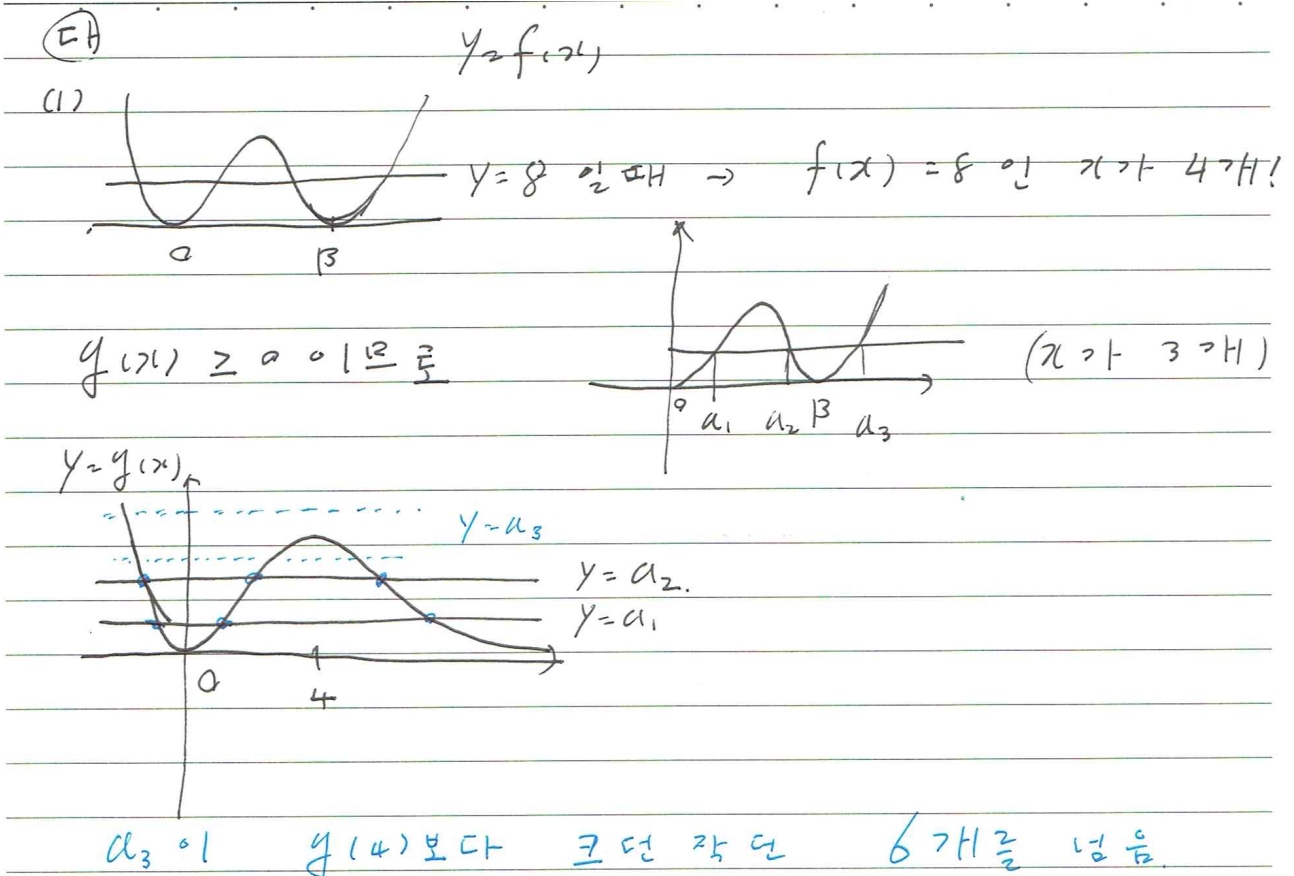 다
y=f(x)
(1)
y=8 일때 → f(x)=8 인 x가 4개!
0 β
g(x) ≥ 0 이므로
(x가 3개)
0 α₁ α₂ β α₃
y=g(x)
y=α₃
y=α₂.
y=α₁
0 4
α₃이 g(4)보다 크던 작던 6개를 넘음.